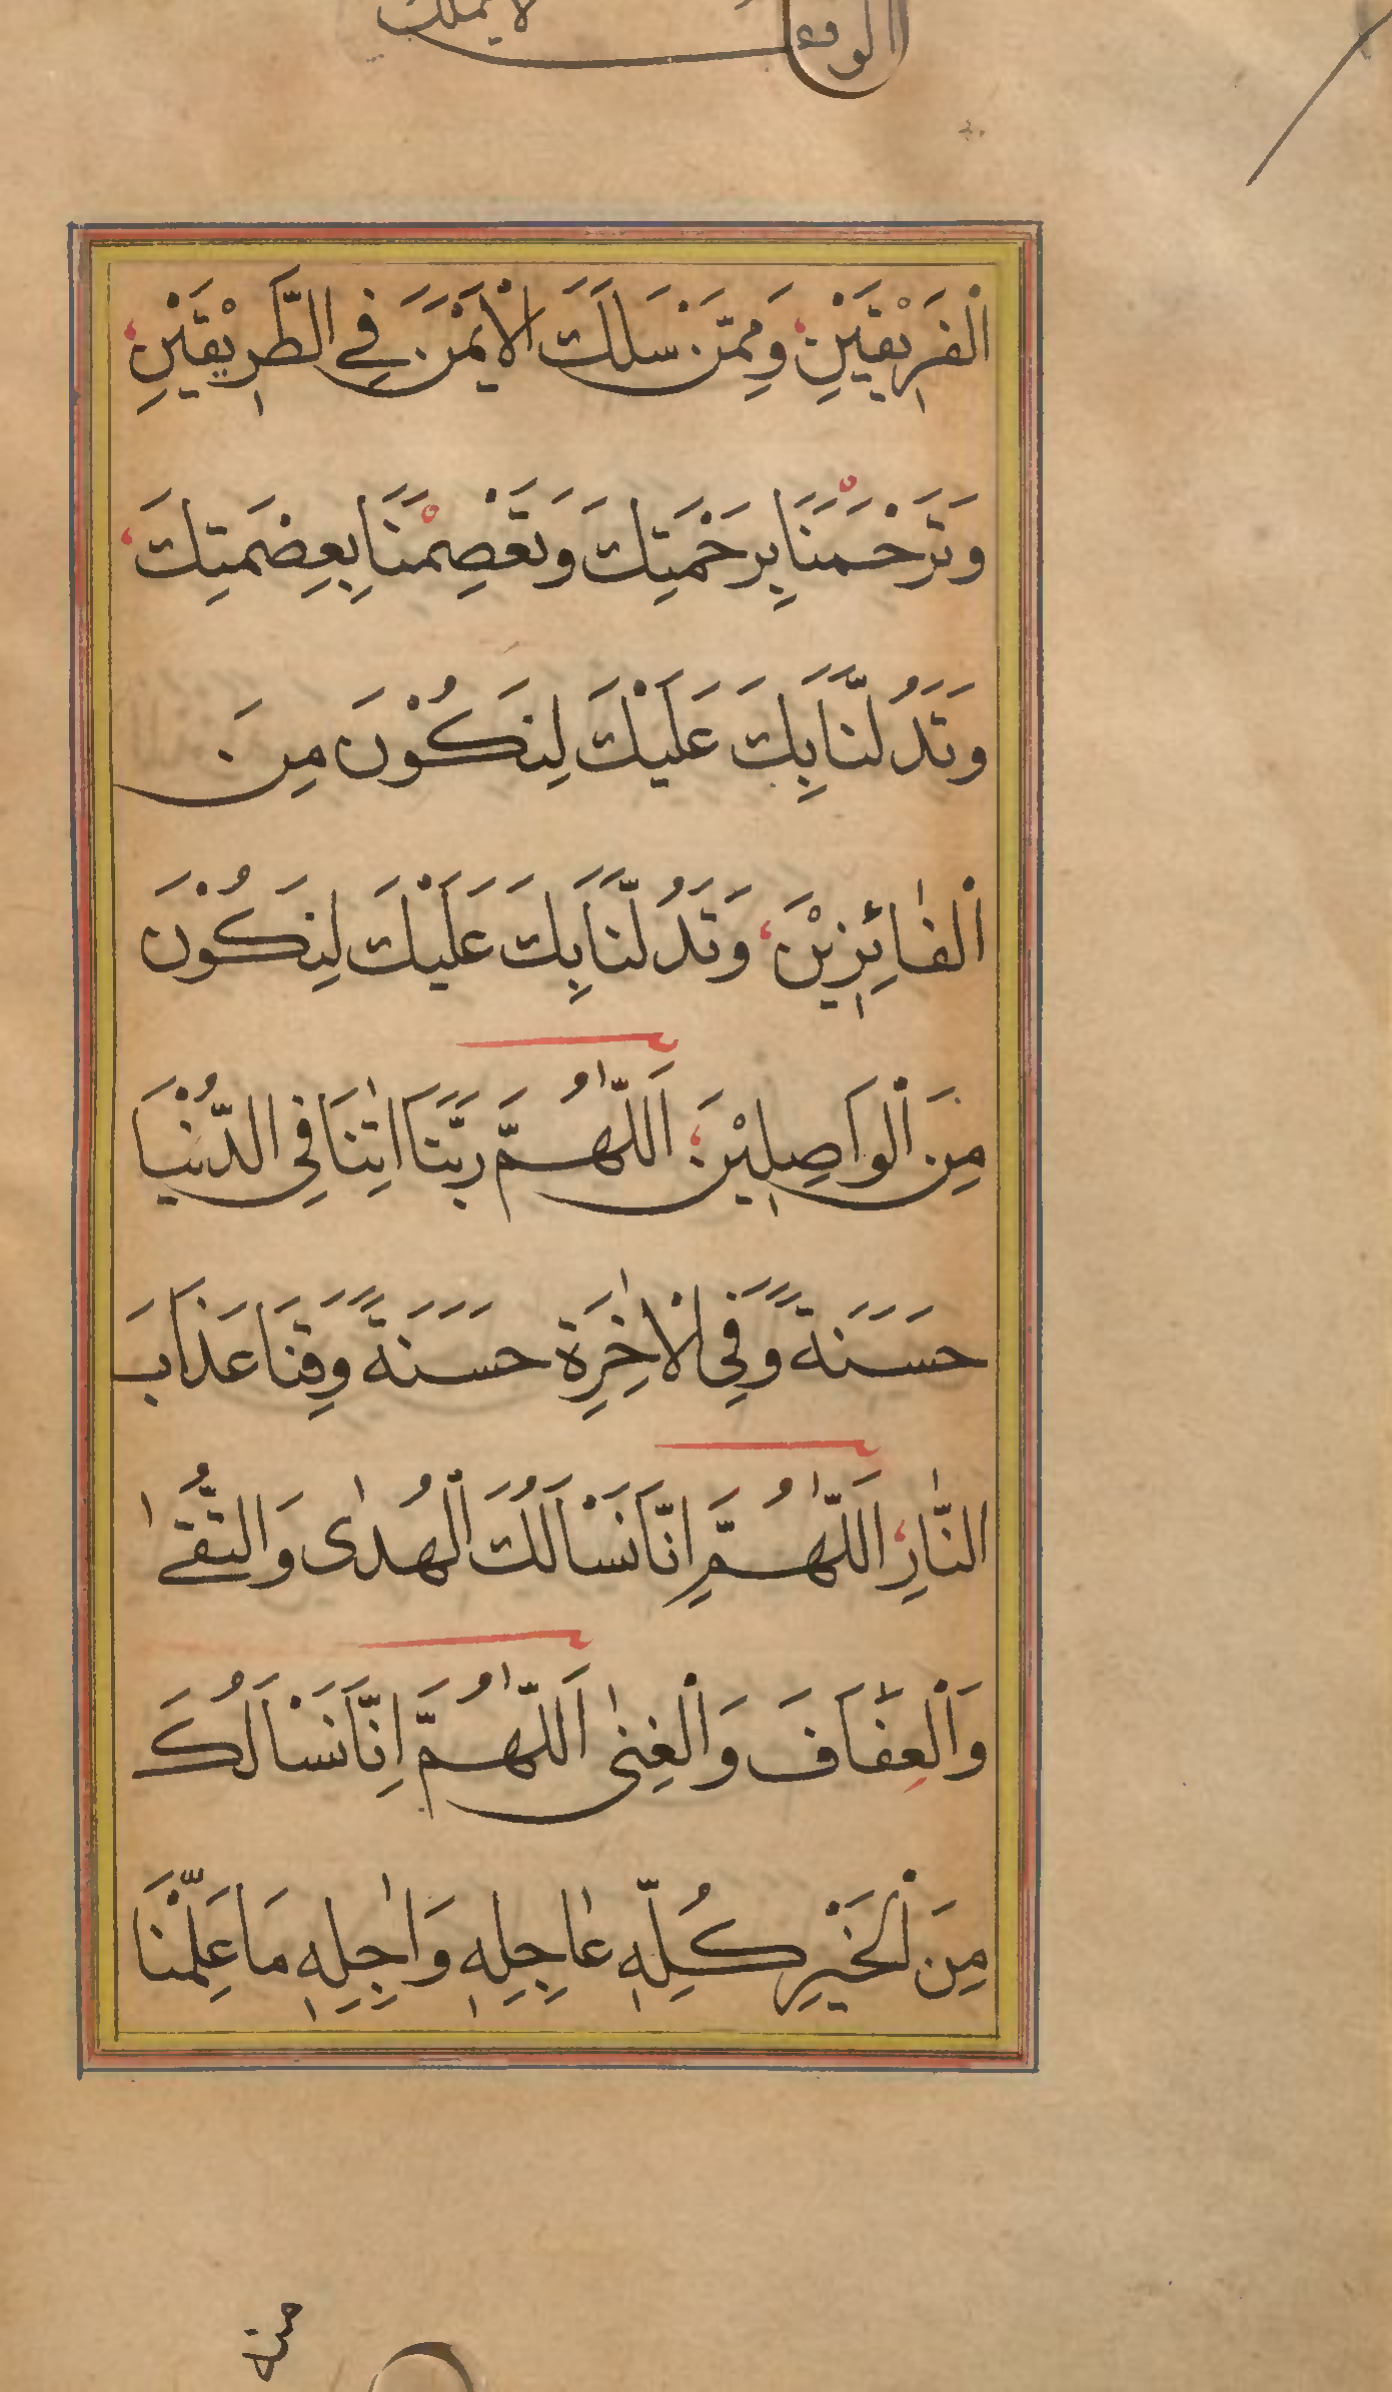 الوقف لا يملك
الْفَرِيْقَيْنِ، وَمِمَّنْ سَلَكَ الْاَيْمَنَ فِي الطَّرِيْقَيْنِ،
وَتَرْحَمَنَا بِرَحْمَتِكَ وَتَعْصِمَنَا بِعِصْمَتِكَ،
وَتَدُلَّنَا بِكَ عَلَيْكَ لِنَكُوْنَ مِنَ
الْفَائِزِيْنَ، وَتَدُلَّنَا بِكَ عَلَيْكَ لِنَكُوْنَ
مِنَ الْوَاصِلِيْنَ، اَللّٰهُمَّ رَبَّنَا اٰتِنَا فِي الدُّنْيَا
حَسَنَةً وَفِي الْاٰخِرَةِ حَسَنَةً وَقِنَا عَذَابَ
النَّارِ، اَللّٰهُمَّ اِنَّا نَسْاَلُكَ الْهُدٰى وَالتُّقٰى
وَالْعِفَافَ وَالْغِنٰى اَللّٰهُمَّ اِنَّا نَسْاَلُكَ
مِنَ الْخَيْرِ كُلِّهٖ عَاجِلِهٖ وَاٰجِلِهٖ مَا عَلِمْنَا
منه